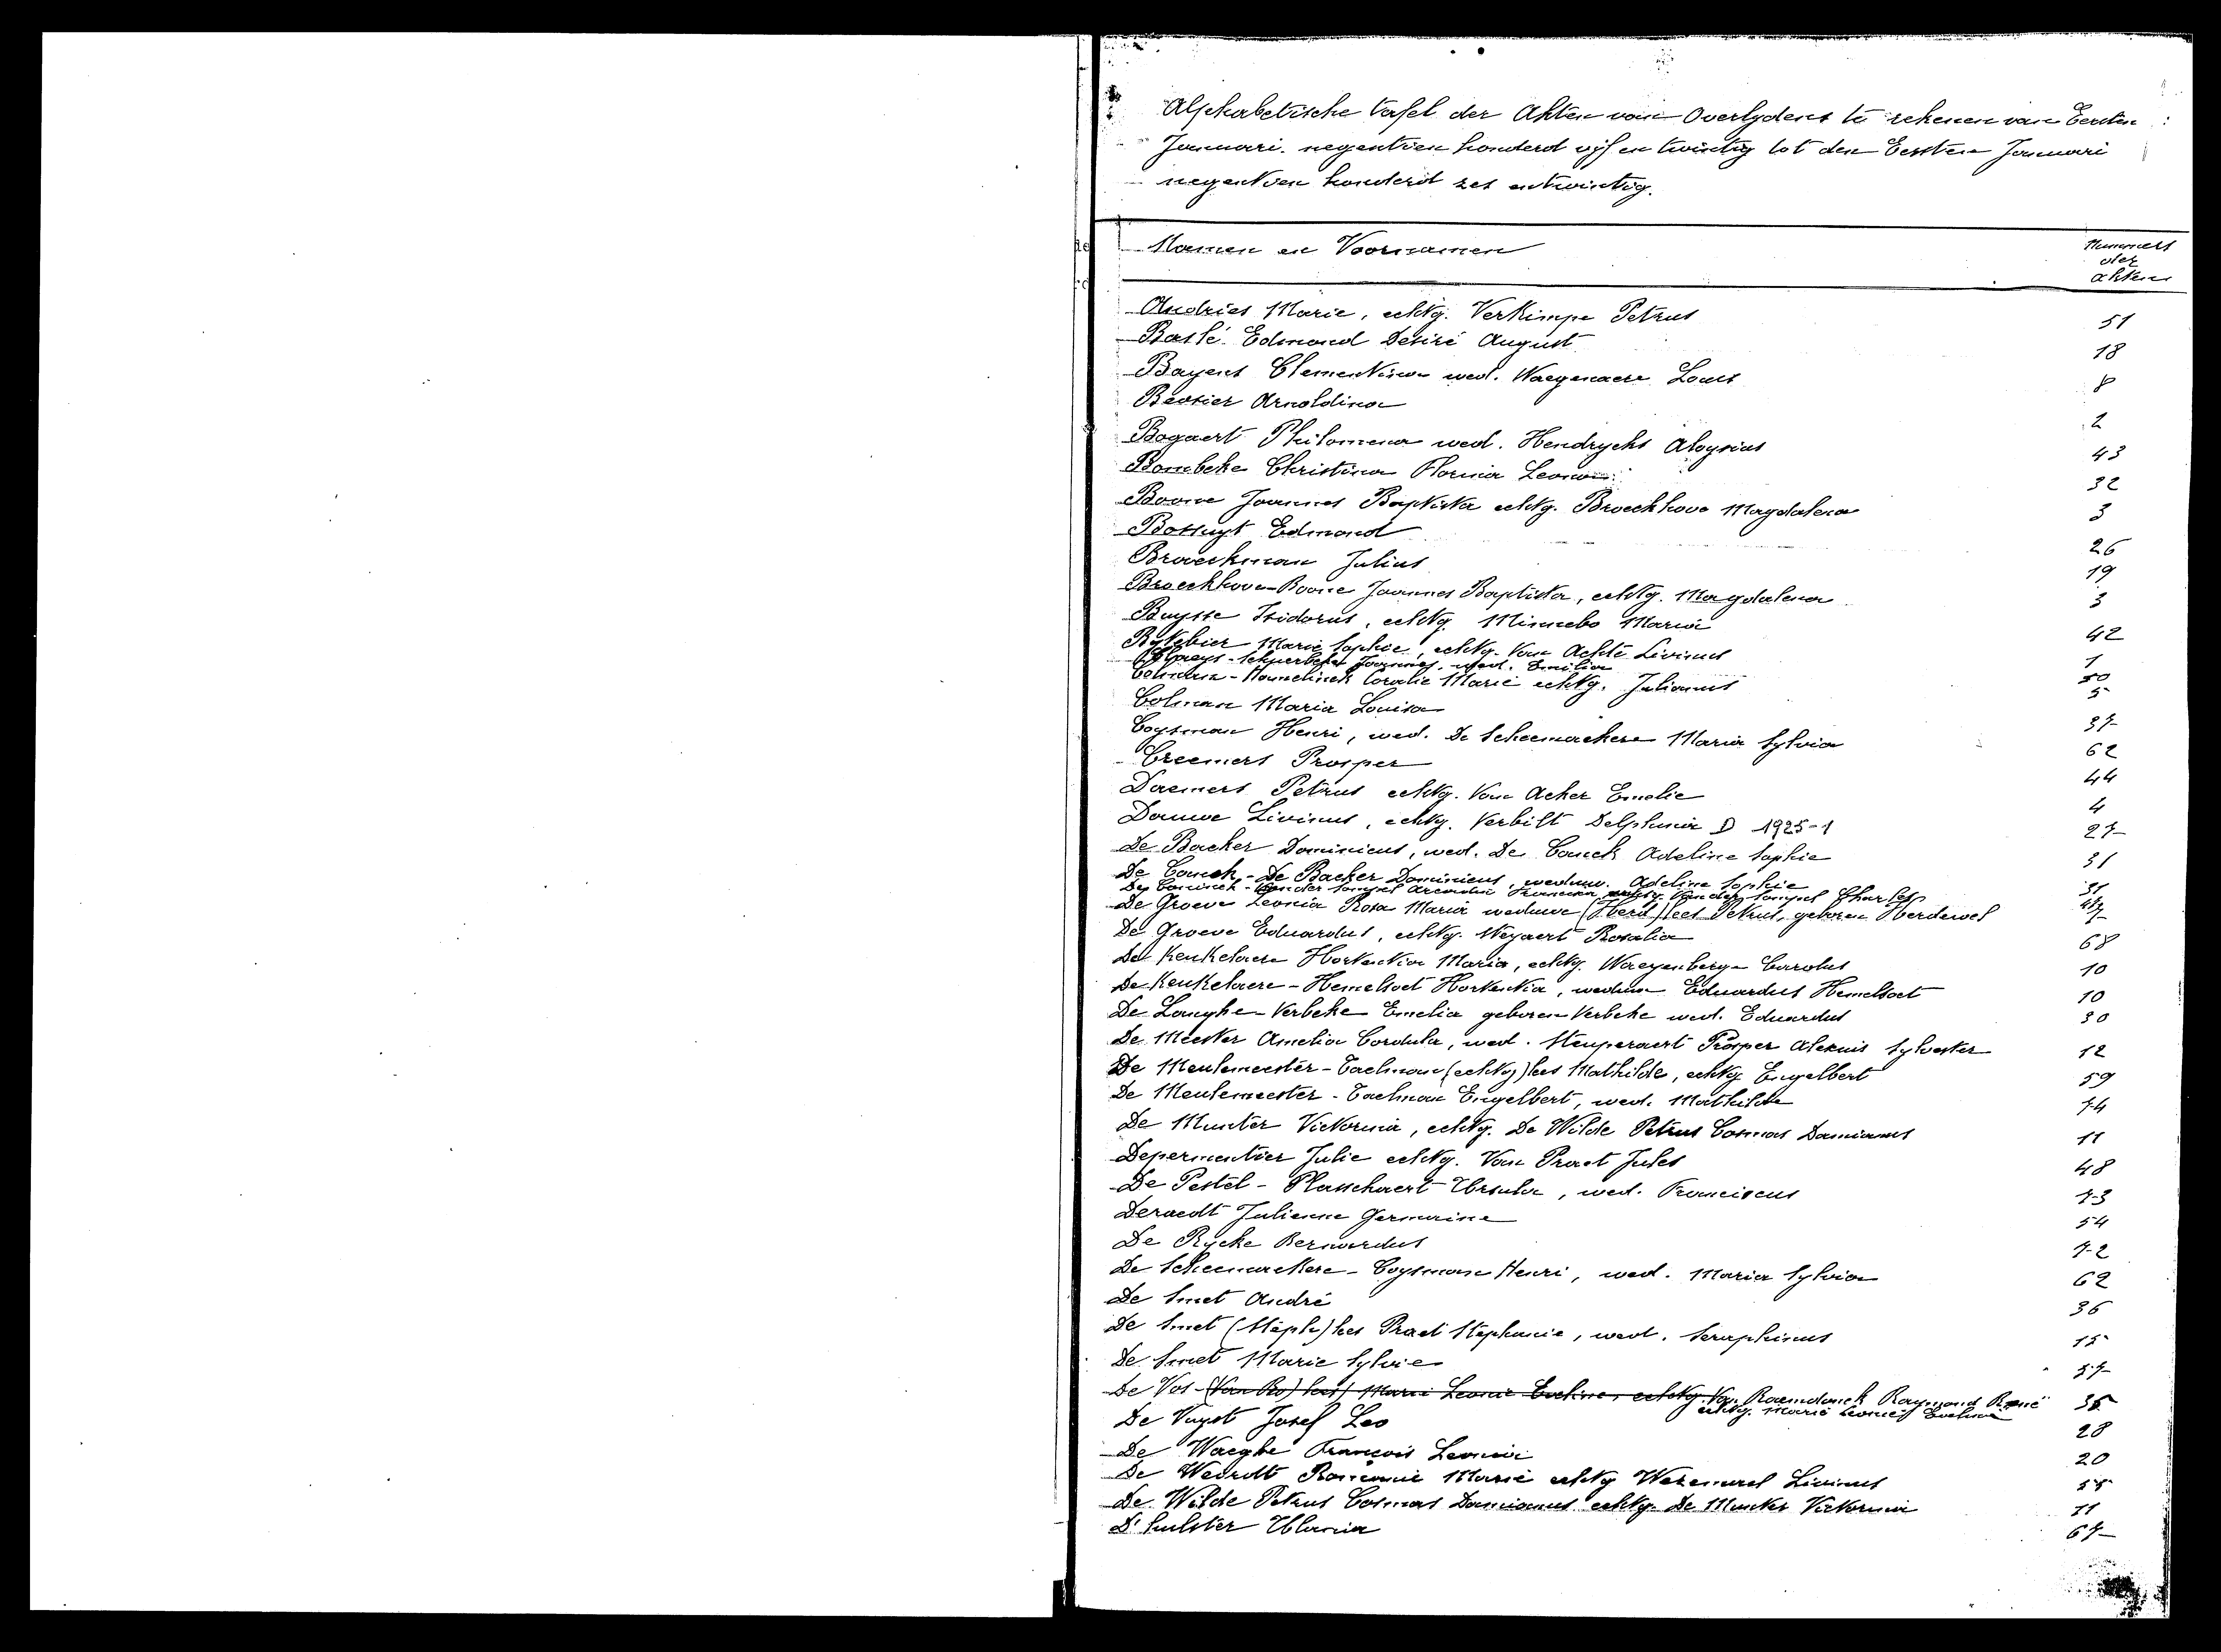 Alphabetische tafel der Akten van Overlydens te rekenen van Eersten
Januari negentien honderd vyf en twintig tot den Eersten Januari
negentien honderd zes entwintig.
Namen en Voornamen
Nummers
der
akten
Andries Marie, echtg. Verkimpe Petrus 51
Baslé Edmond Désiré August 18
Bayens Clementina wed. Waegenaere Louis 8
Beosier Arnoldina 2
Bogaert Philomena wed. Hendryckx Aloysius 43
Bombeke Christina Florina Leona 32
Boone Joannes Baptista echtg. Broeckhove Magdalena 3
Bossuyt Edmond 26
Broeckman Julius 19
Broeckhove-Boone Joannes Baptista, echtg. Magdalena 3
Buysse Isidorus, echtg. Minnebo Maria 42
Bytebier Marie Sophie, echtg. Van Achte Livinus 1
Joannes, wed. Emilia 50
Colman- Coralie Marie echtg. Julianus 5
Colman Maria Louisa 37
Coysman Henri, wed. De Scheemaekere Maria Sylvia 62
Creemers Prosper 44
Daemers Petrus echtg. Van Acker Emelie 4
Dauwe Livinus, echtg. Verbilt Delphina D 1925-1 27
De Backer Dominicus, wed. De Conck Adeline Sophie 31
De Conck-De Backer Dominicus, weduw. Adeline Sophie 31
De Coninck-Van der Sompel Arcadia echtg. Van der Sompel Charles
De Groeve Leonia Rosa Maria weduwe (Herd) lees Petrus, geboren Herdewel 7
De Groeve Eduardus, echtg. Wegaert Rosalia 68
De Keukelaere Hortentia Maria, echtg. Waeyenberge Carolus 10
De Keukelaere-Hemelsoet Hortentia, weduw Eduardus Hemelsoet 10
De Langhe-Verbeke Emelia geboren Verbeke wed. Eduardus 30
De Meester Amelia Cordula, wed. Steuperaert Prosper Alexuis Sylvester 12
De Meulemeester-Taelman (echtg) lees Mathilde, echtg Engelbert 59
De Meulemeester-Taelman Engelbert, wed. Mathilde 74
De Munter Victorina, echtg. De Wilde Petrus Cosmas Damianus 11
Depermentier Julie echtg. Van Praet Jules 48
De Pestel-Plasschaert Ursula, wed. Franciscus 73
Deraedt Julienne Germaine 54
De Rycke Bernardus 72
De Scheemaekere-Coysman Henri, wed. Maria Sylvia 62
De Smet André 36
De Smet (Steph) lees Praet Stephanie, wed. Seraphinus 15
De Smet Marie Sylvie 57
De Vos (Van Ro) lees) Marie Leonie Eveline, echtg. Van Raemdonck Raymond René 35
echtg. Marie Leonie Eveline
De Vuyst Josef Leo 28
De Waeghe François Leonie 20
De Weirdt Romanie Marie echtg Wezemael Livinus 55
De Wilde Petrus Cosmas Damianus echtg. De Munter Victorina 11
D'hulster Urania 67